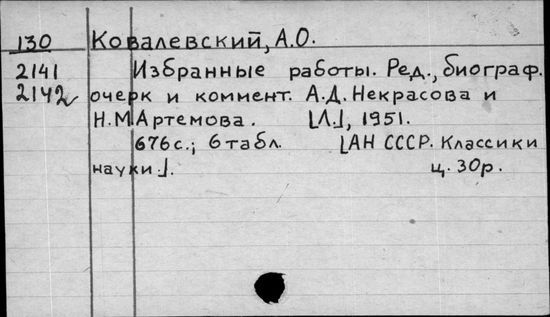 130 Ковалевский, А.О.
2141 Избранные работы. Ред., биограф.
2142 очерк и коммент. А.Д. Некрасова и
Н.М Артемова. [Л.], 1951.
676с.; 6 табл. [АН СССР. Классики
науки.]. ц. 30р.